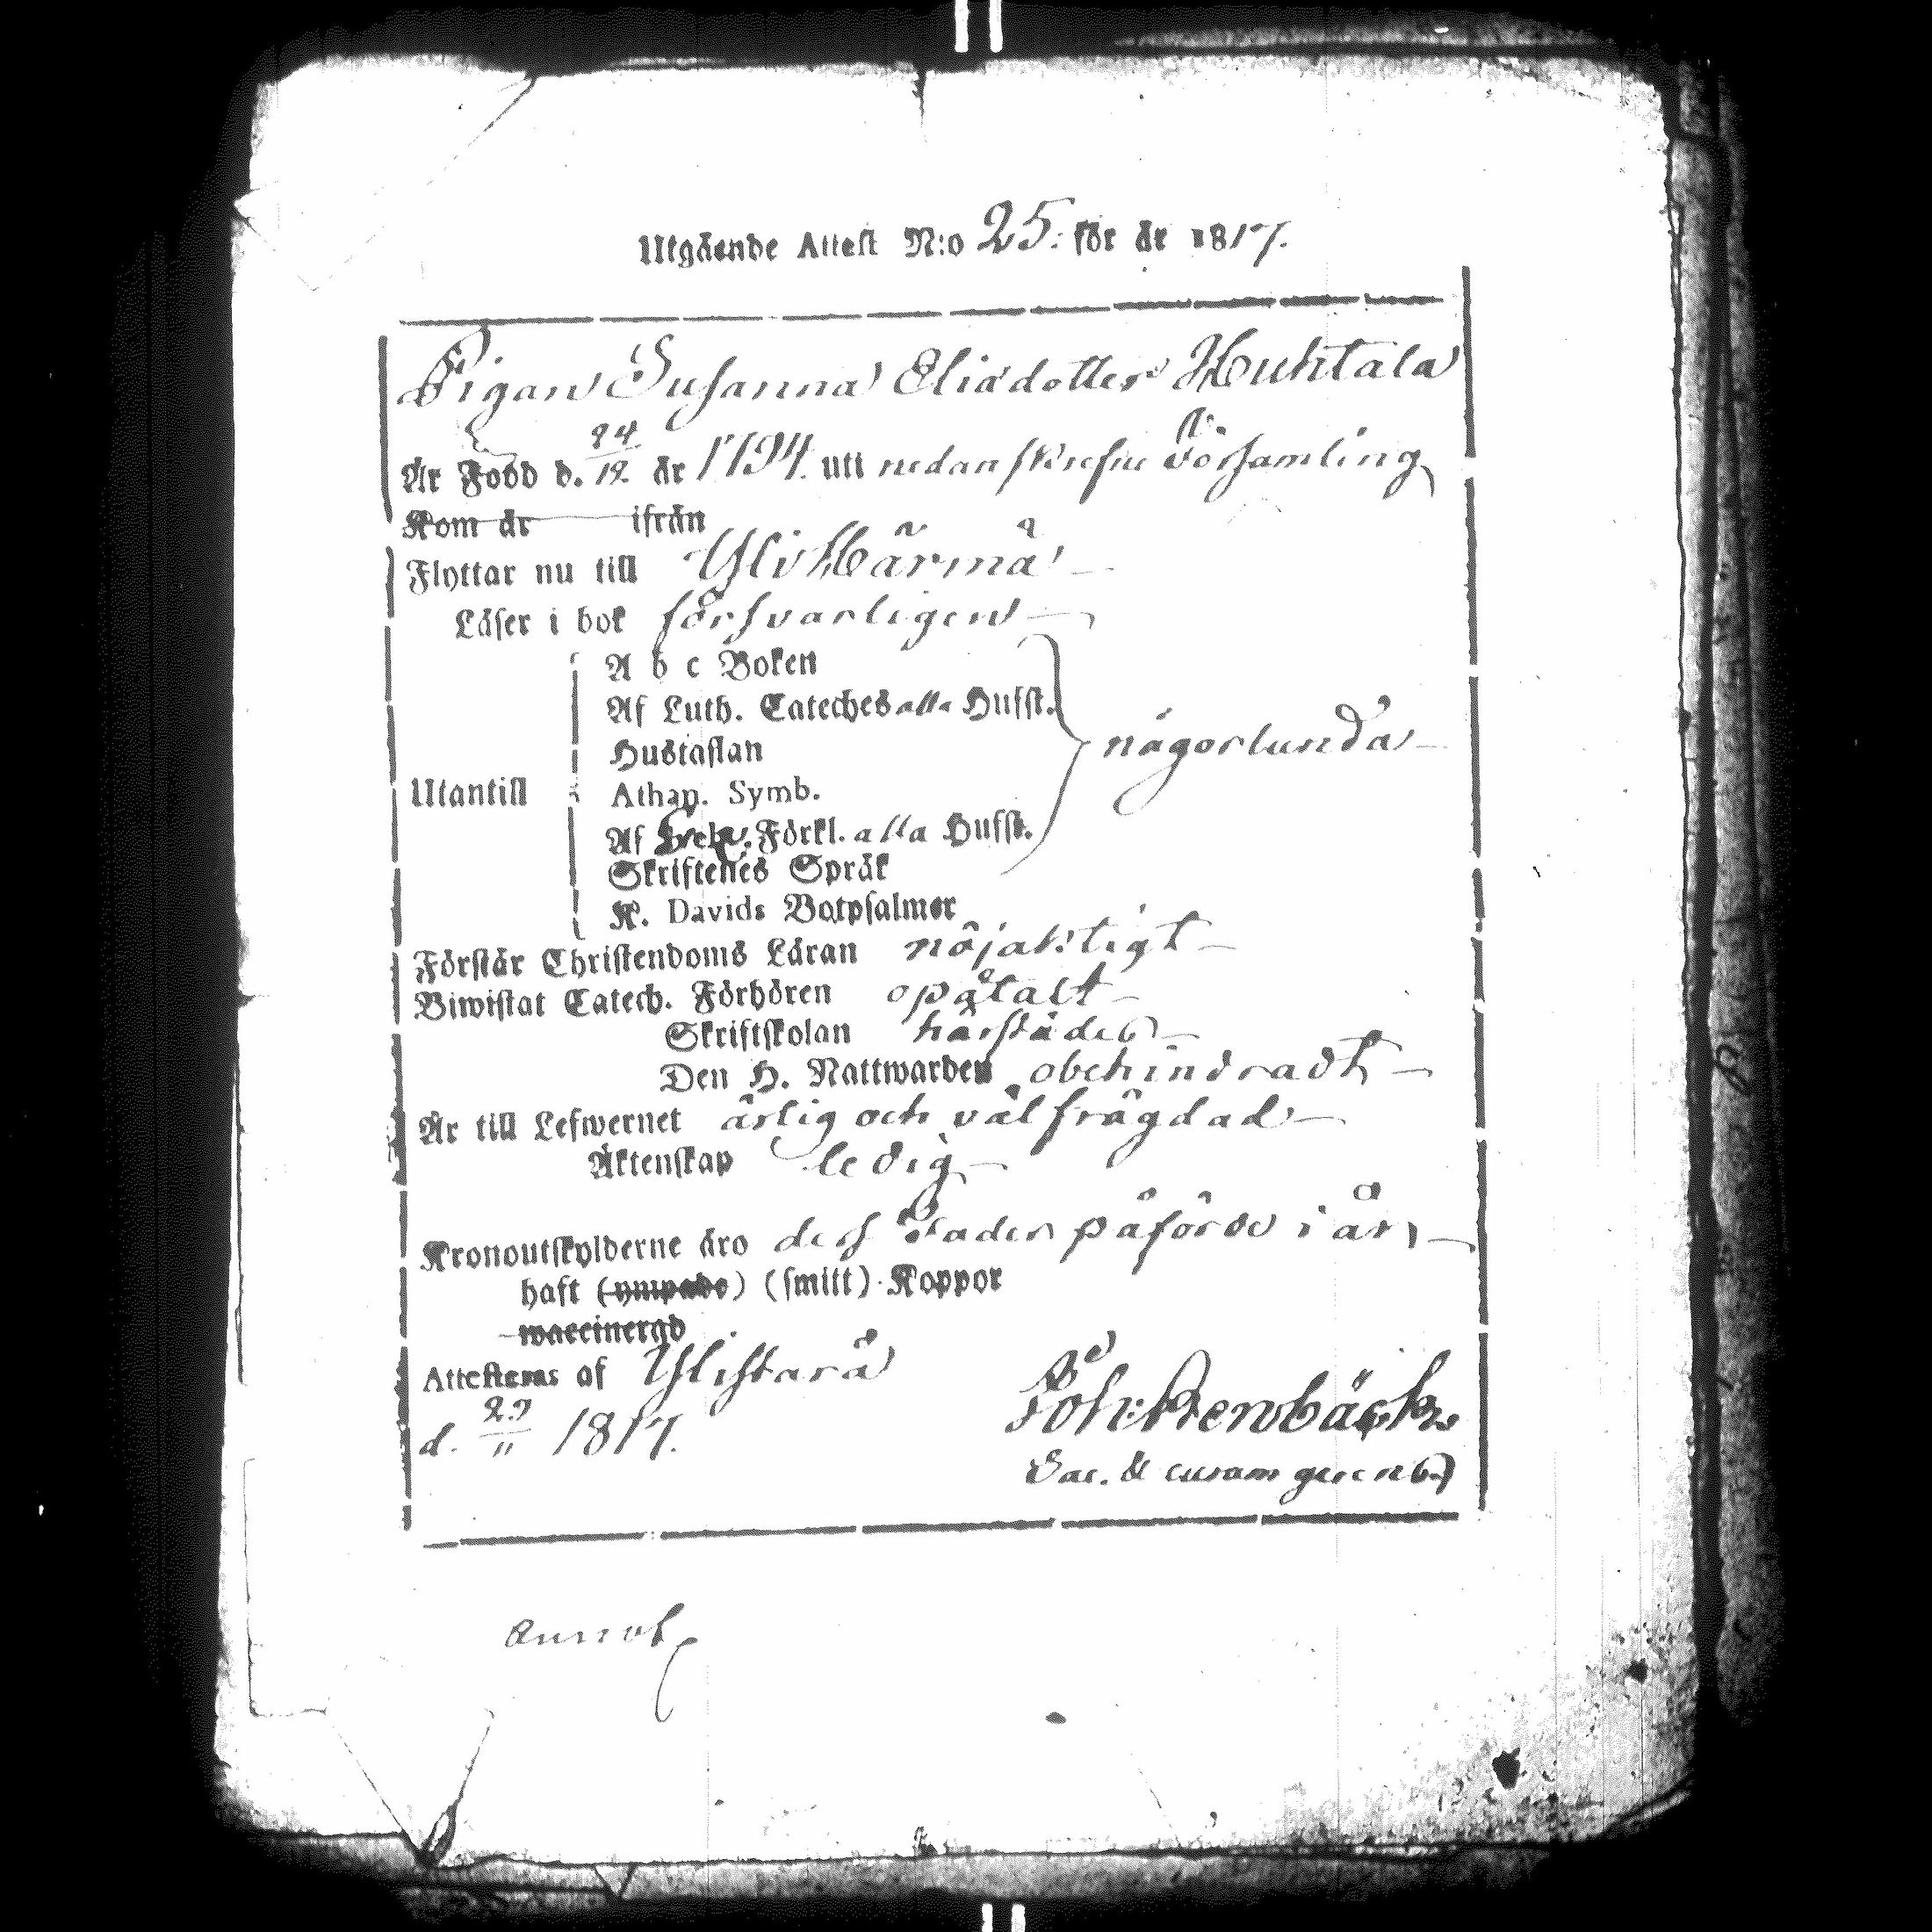 Utgående Attest N:o 25. för år 1817.
Pigan Susanna Eliædotter Huhtala
Är Född d. 24/12 år 1794. uti nedanskrefne Församling
Kom år ifrån
Flyttar nu till YliHärmä
Läser i bok försvarligen
A b c Boken
Af Luth. Cateches alla Hufst.
Hustaflan
någorlunda
Utantill
Athan. Symb.
Af Förkl. alla Hufst.
Skriftenes Språk
K. Davids Botpsalmer
Förstår Christendoms Läran nöjaktigt
Biwistat Catech. Förhören opåtalt
Skriftskolan härstädes
Den H. Nattwarden obehindradt
Är till Lefwernet ärlig och välfrägdad
Äktenskap ledig
Kronoutskylderne äro dess Fader påförde i år
haft (ympade) (smitt) Koppor
waccinerad
Attesteras af Ylistarå
d. 29/11 1817.
Joh: Kerwbäck
Sac. & curam gerens